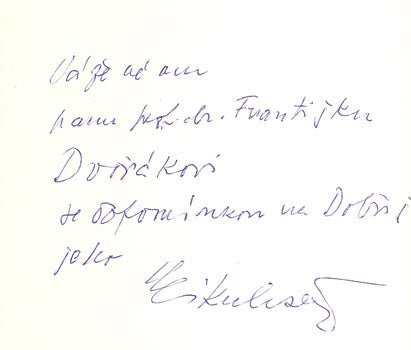 Váženému
panu prof. dr. Františku
Dvořákovi
se vzpomínkou na Dobříš
jako